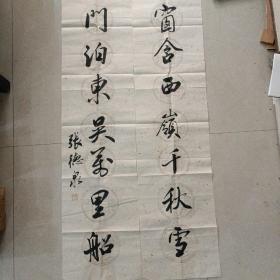 窗含西嶺千秋雪
門泊東吴萬里船
張德泉